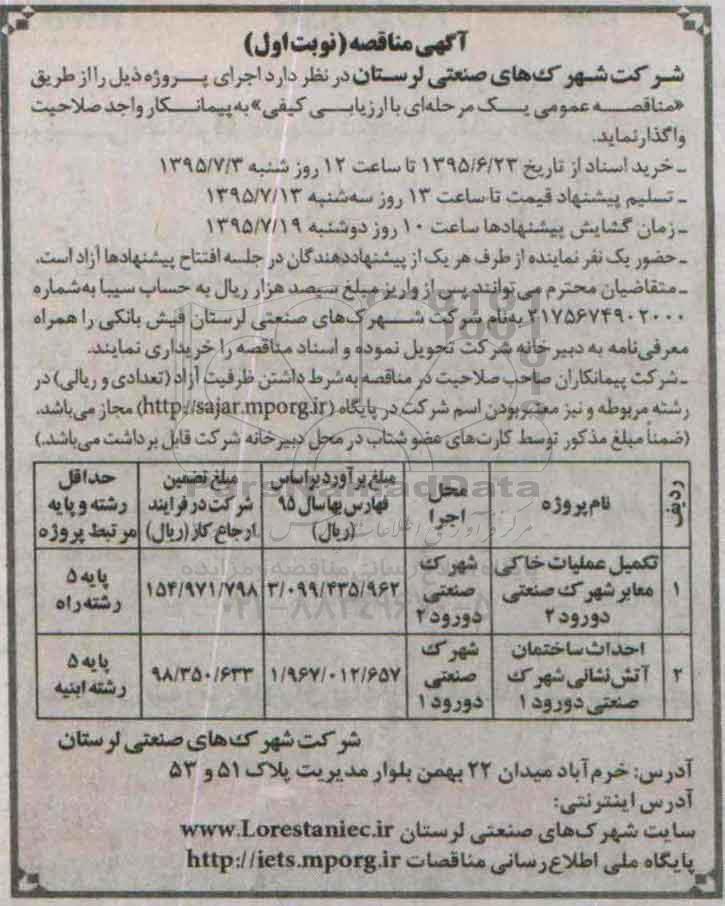 آگهی مناقصه (نوبت اول)
شرکت شهرک‌های صنعتی لرستان در نظر دارد اجرای پروژه ذیل را از طریق
«مناقصه عمومی یک مرحله‌ای با ارزیابی کیفی» به پیمانکار واجد صلاحیت
واگذار نماید.
ـ خرید اسناد از تاریخ ۱۳۹۵/۶/۲۳ تا ساعت ۱۲ روز شنبه ۱۳۹۵/۷/۳
ـ تسلیم پیشنهاد قیمت تا ساعت ۱۳ روز سه‌شنبه ۱۳۹۵/۷/۱۳
ـ زمان گشایش پیشنهادها ساعت ۱۰ روز دوشنبه ۱۳۹۵/۷/۱۹
ـ حضور یک نفر نماینده از طرف هر یک از پیشنهاددهندگان در جلسه افتتاح پیشنهادها آزاد است.
ـ متقاضیان محترم می‌توانند پس از واریز مبلغ سیصد هزار ریال به حساب سیبا به‌شماره
۲۱۷۵۶۷۴۹۰۲۰۰۰ به‌نام شرکت شهرک‌های صنعتی لرستان فیش بانکی را همراه
معرفی‌نامه به دبیرخانه شرکت تحویل نموده و اسناد مناقصه را خریداری نمایند.
ـ شرکت پیمانکاران صاحب صلاحیت در مناقصه به‌شرط داشتن ظرفیت آزاد (تعدادی و ریالی) در
رشته مربوطه و نیز معتبر بودن اسم شرکت در پایگاه (http://sajar.mporg.ir) مجاز می‌باشد.
(ضمناً مبلغ مذکور توسط کارت‌های عضو شتاب در محل دبیرخانه شرکت قابل برداشت می‌باشد.)
ردیف | نام پروژه | محل اجرا | مبلغ برآورد براساس فهارس بها سال ۹۵ (ریال) | مبلغ تضمین شرکت در فرایند ارجاع کار (ریال) | حداقل رشته و پایه مرتبط پروژه
۱ | تکمیل عملیات خاکی معابر شهرک صنعتی دورود ۲ | شهرک صنعتی دورود ۲ | ۳/۰۹۹/۴۳۵/۹۶۲ | ۱۵۴/۹۷۱/۷۹۸ | پایه ۵ رشته راه
۲ | احداث ساختمان آتش‌نشانی شهرک صنعتی دورود ۱ | شهرک صنعتی دورود ۱ | ۱/۹۶۷/۰۱۲/۶۵۷ | ۹۸/۳۵۰/۶۳۳ | پایه ۵ رشته ابنیه
شرکت شهرک‌های صنعتی لرستان
آدرس: خرم‌آباد میدان ۲۲ بهمن بلوار مدیریت پلاک ۵۱ و ۵۳
آدرس اینترنتی:
سایت شهرک‌های صنعتی لرستان www.Lorestaniec.ir
پایگاه ملی اطلاع‌رسانی مناقصات http://iets.mporg.ir